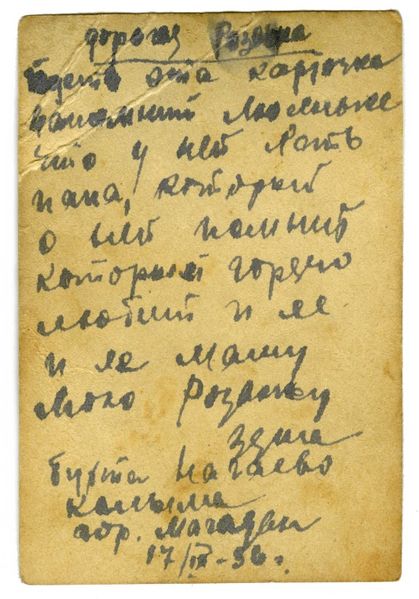 дорогая Розочка
Пусть эта карточка
напомнит Люленьке
что у ней есть
папа, который
о ней помнит
который горячо
любит и ее
и ее маму
Мою Розочку
Зяма
Бухта Нагаево
Колыма
гор. Магадан
17/IX-36г.